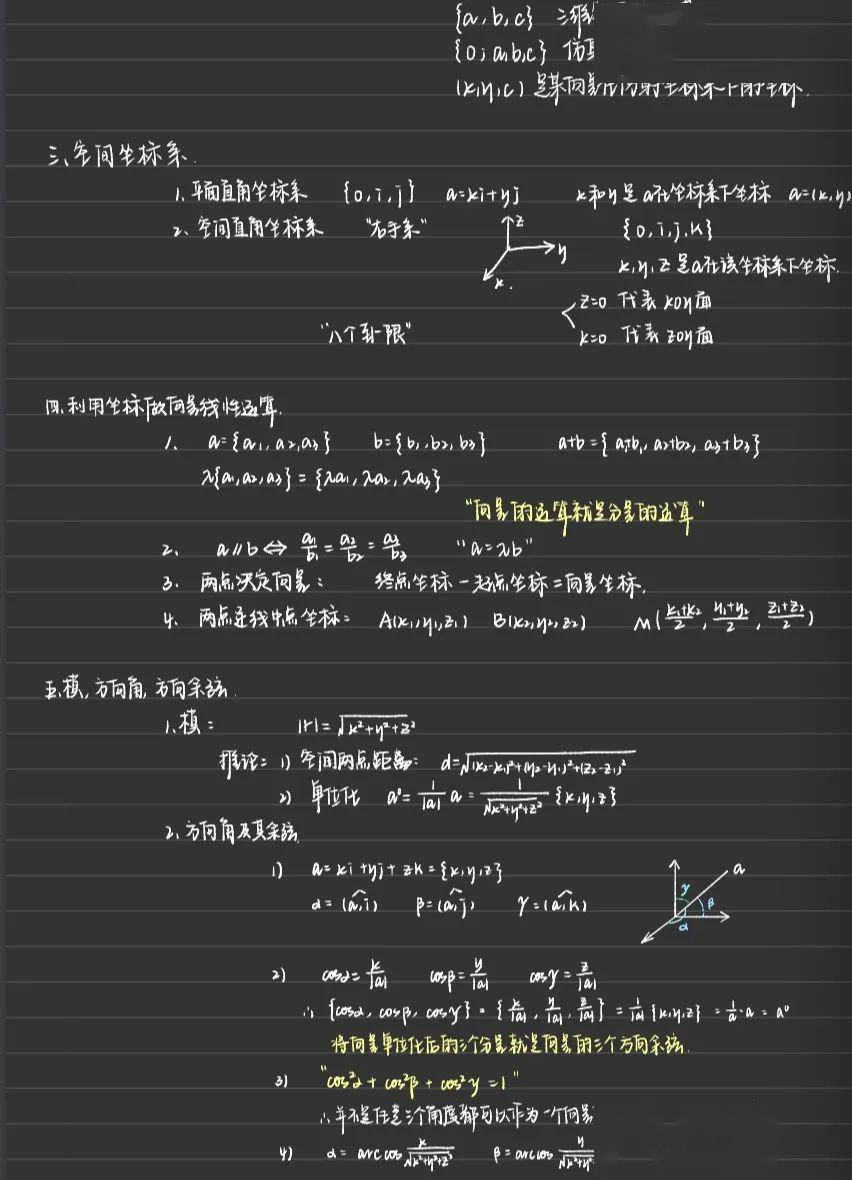 {a,b,c} 三维
{0; a,b,c} 仿
(x,y,c) 是某向量在仿射坐标系下的坐标.
三、空间坐标系.
1. 平面直角坐标系 {0,i,j} a=xi+yj x和y是a在坐标系下坐标 a=(x,y)
2、空间直角坐标系 "右手系" {0,i,j,k}
z
y
x.
x,y,z是a在该坐标系下坐标.
z=0 代表xoy面
"八个卦限" x=0 代表zoy面
四.利用坐标做向量线性运算.
1. a={a₁,a₂,a₃} b={b₁,b₂,b₃} a+b={a₁+b₁, a₂+b₂, a₃+b₃}
λ{a₁,a₂,a₃}={λa₁,λa₂,λa₃}
"向量的运算就是分量的运算"
2、 a∥b⇔ a₁/b₁=a₂/b₂=a₃/b₃ "a=λb"
3. 两点决定向量: 终点坐标-起点坐标=向量坐标.
4. 两点连线中点坐标: A(x₁,y₁,z₁) B(x₂,y₂,z₂) M((x₁+x₂)/2, (y₁+y₂)/2, (z₁+z₂)/2)
五.模,方向角,方向余弦.
1.模: |r|=√(x²+y²+z²)
推论: 1) 空间两点距离: d=√((x₂-x₁)²+(y₂-y₁)²+(z₂-z₁)²)
2) 单位化 a⁰=1/|a| a = 1/√(x²+y²+z²) {x,y,z}
2.方向角及其余弦
1) a=xi+yj+zk={x,y,z}
α=(a,i) β=(a,j) γ=(a,k)
a
γ
β
α
2) cosα=x/|a| cosβ=y/|a| cosγ=z/|a|
∴ {cosα, cosβ, cosγ}={x/|a|, y/|a|, z/|a|}=1/|a| {x,y,z} = 1/a·a = a⁰
将向量单位化后的三个分量就是向量的三个方向余弦.
3) "cos²α+cos²β+cos²γ=1"
∴并不是任意三个角度都可以作为一个向量
4) α=arccos x/√(x²+y²+z²) β=arccos y/√(x²+y²